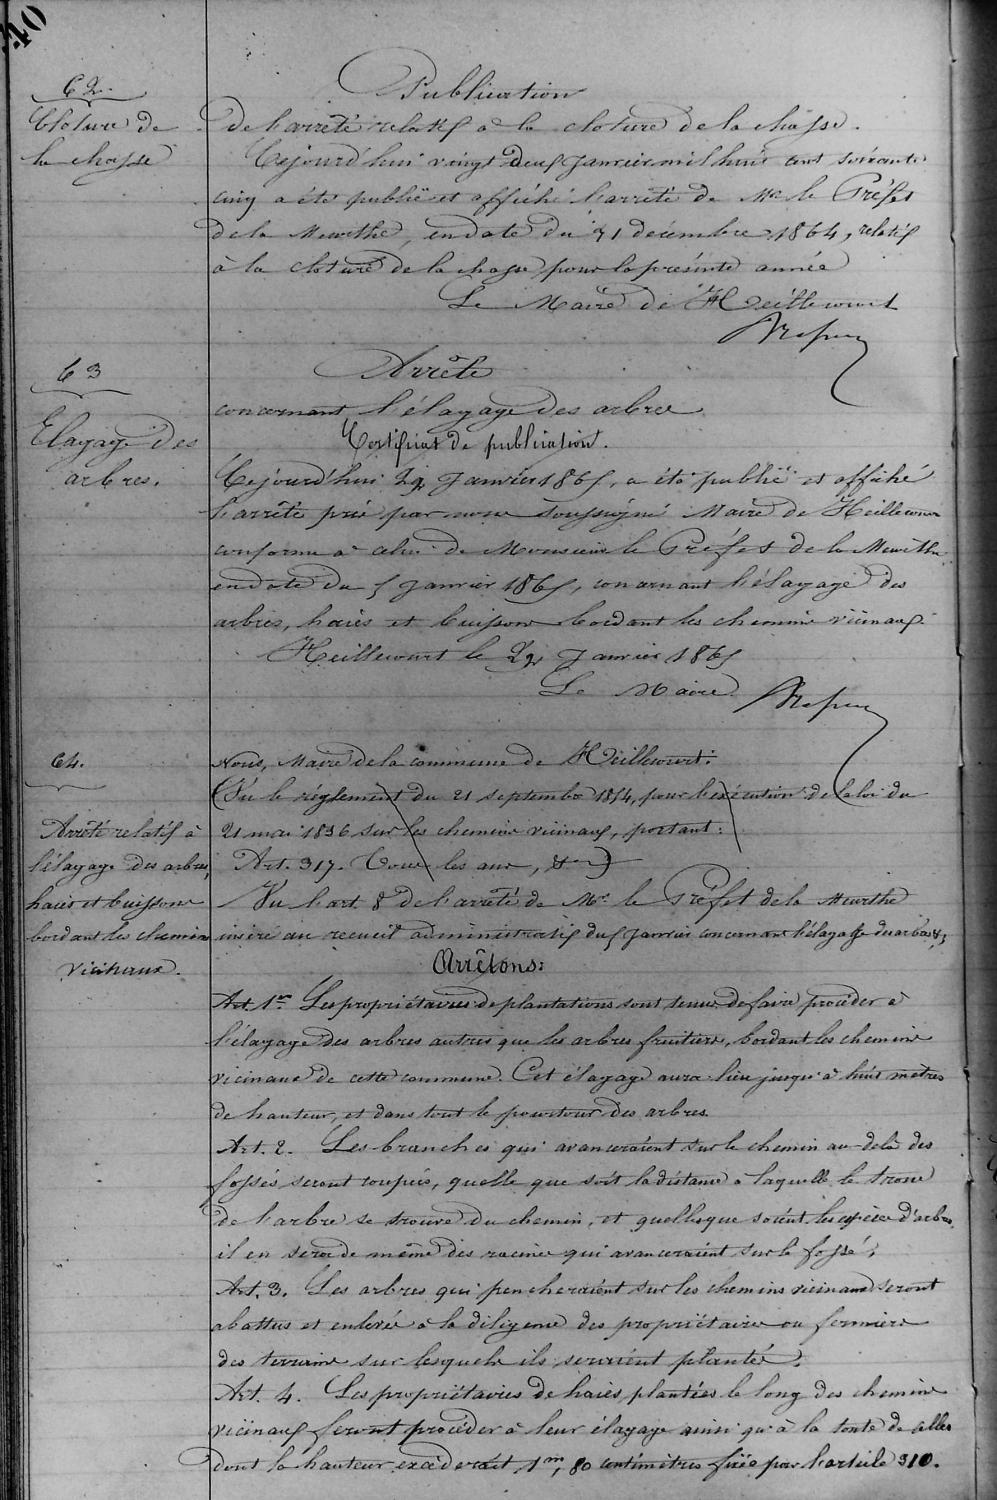 40
62
Cloture de
la chasse
Publication
de l'arrêté relatif à la cloture de la chasse.
Cejourd'hui vingt deux Janvier mil huit cent soixante
cinq a été publié et affiché l'arrêté de Mr le Préfet
de la Meurthe, en date du 31 décembre 1864, relatif
à la cloture de la chasse pour la présente année
Le Maire de Heillecourt
63
Elagage des
arbres.
Arrêté
concernant l'élagage des arbres
Certificat de publication.
Cejourd'hui 29 Janvier 1865, a été publié et affiché
l'arrêté pris par nous soussigné Maire de Heillecourt
conforme à celui de Monsieur le Préfet de la Meurthe
en date du 5 Janvier 1865, concernant l'élagage des
arbres, haies et buissons bordant les chemins vicinaux
Heillecourt le 29 Janvier 1865
Le Maire
64.
Arrêté relatif à
l'élagage des arbres,
haies et buissons
bordant les chemins
vicinaux.
Nous, Maire de la commune de Heillecourt:
(Vu le réglement du 21 septembre 1854, pour l'exécution de la loi du
21 mai 1836 sur les chemins vicinaux, portant:
Art. 317. Tous les ans, &a)
Vu l'art 8 de l'arrêté de Mr. le Préfet de la Meurthe
inséré au recueil administratif du 5 Janvier concernant l'élagage des arbres &,
Arrêtons:
Art. 1er Les propriétaires de plantations sont tenus de faire procéder à
l'élagage des arbres autres que les arbres fruitiers, bordant les chemins
vicinaux de cette commune. Cet élagage aura lieu jusqu'à huit metres
de hauteur, et dans tout le pourtour des arbres
Art. 2. Les branches qui avanceraient sur le chemin au-delà des
fossés seront coupées, quelle que soit la distance à laquelle le tronc
de l'arbre se trouve du chemin, et quelles que soient les espèces d'arbres
il en sera de même des racines qui avanceraient sur le fossé.
Art. 3. Les arbres qui pencheraient sur les chemins vicinaux seront
abattus et enlevés à la diligence des propriétaires ou fermiers
des terrains sur lesquels ils seraient plantés.
Art. 4. Les propriétaires de haies plantées le long des chemins
vicinaux feront procéder à leur élagage ainsi qu'à la tonte de celles
dont la hauteur excéderait 1m, 80 centimètres fixée par l'article 310.